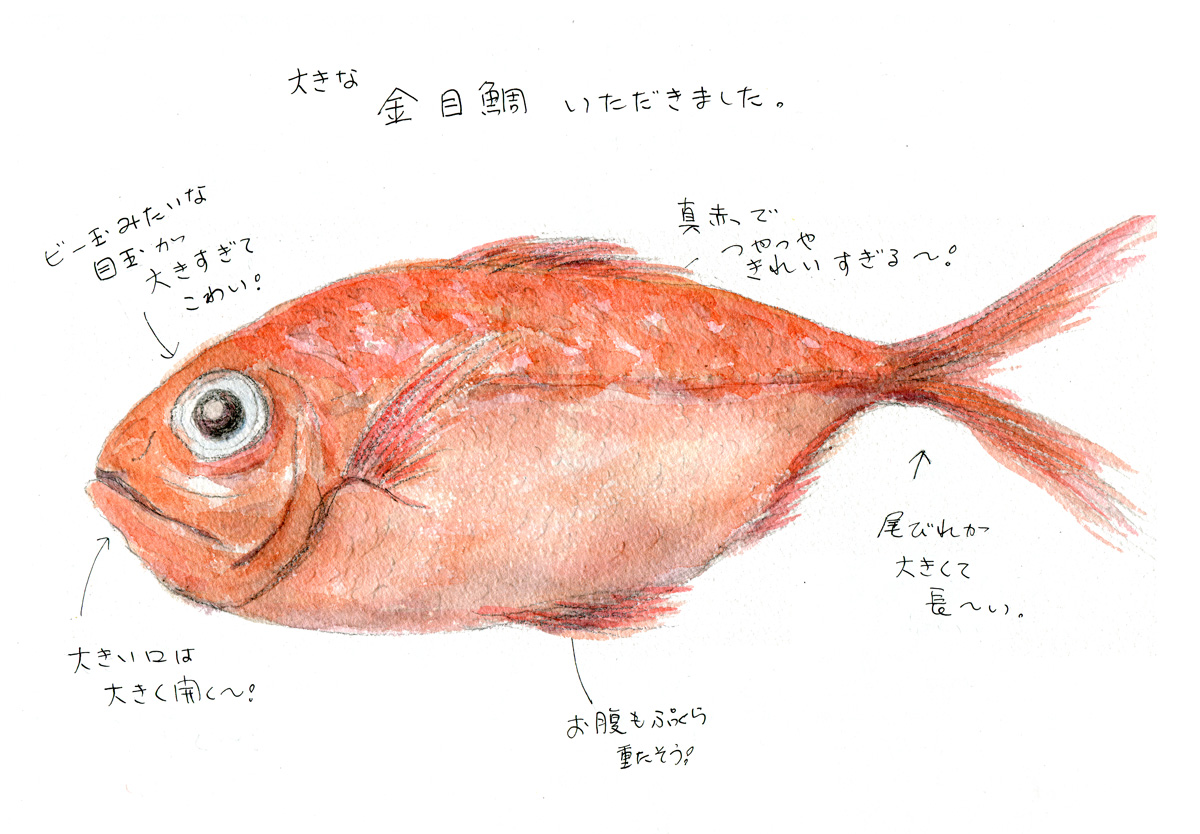 大きな
金目鯛 いただきました。
ビー玉みたいな
目玉が
大きすぎて
こわい!
真赤っで
つやつや
きれいすぎる〜!
尾びれが
大きくて
長〜い。
大きい口は
大きく開く〜!
お腹もぷっくら
重たそう!